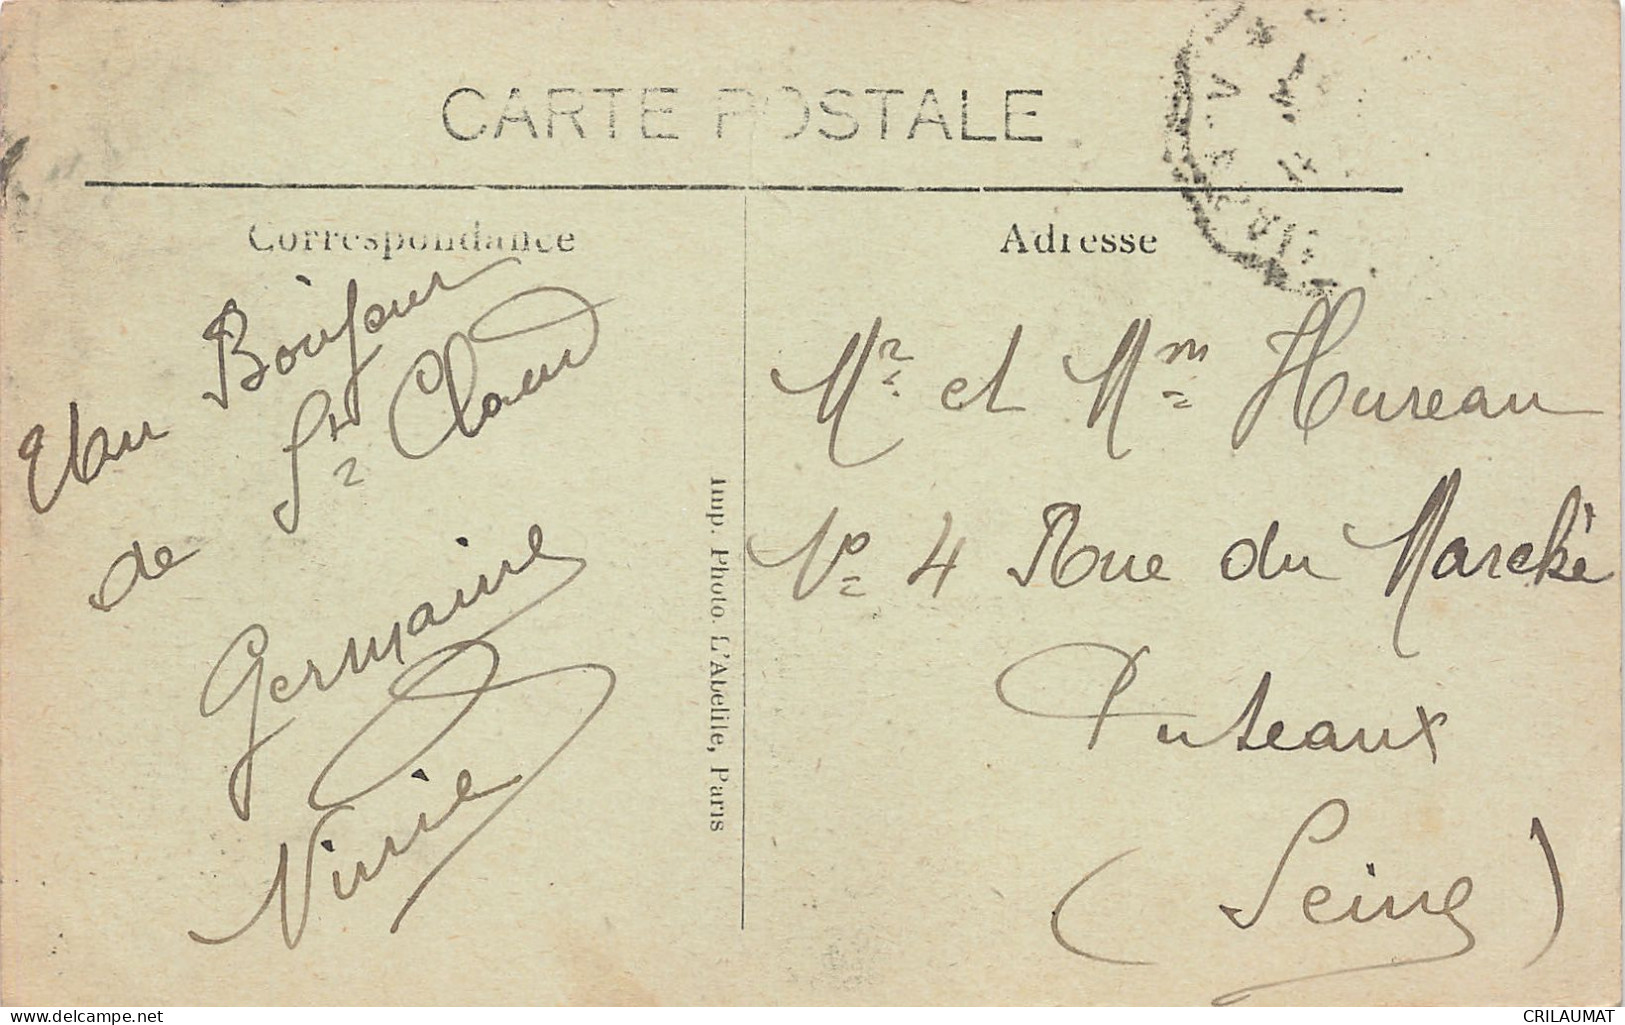 CARTE POSTALE
Correspondance
Adresse
Un Bonjour
de St Claud
Germaine
Mr et Mme Hureau
No 4 Rue du Marché
Puteaux
(Seine)
Imp. Photo. L'Abeille, Paris
www.delcampe.net
CRILAUMAT